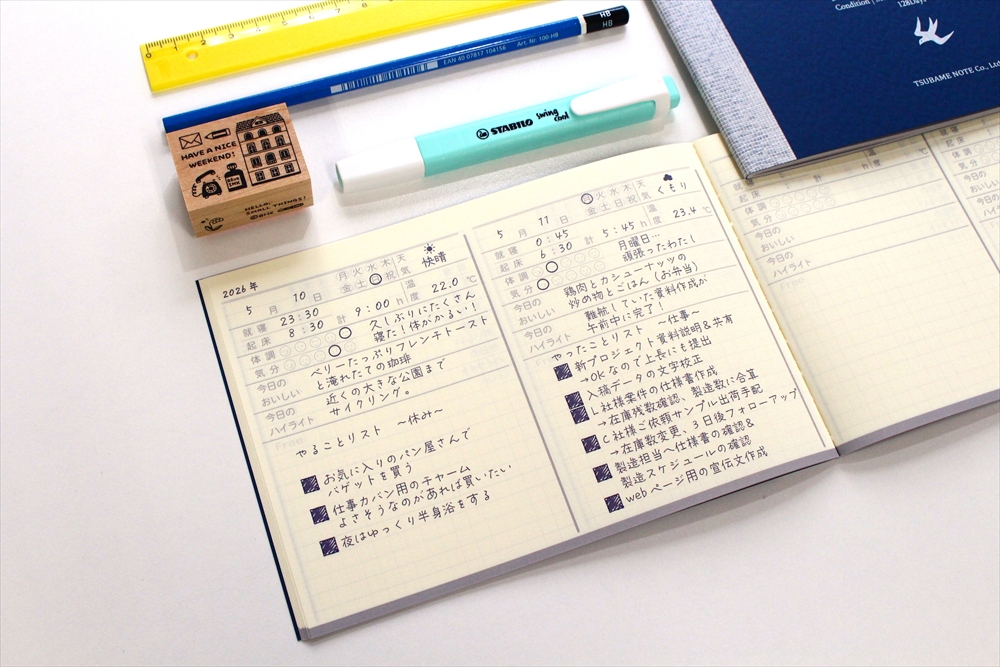 0 1 2 3 4 5 6 7 8
HB
HB
EAN 40 07817 104156 Art. Nr. 100-HB
STABILO swing cool
HAVE A NICE
WEEKEND!
BLUE
INK
HELLO,
SMALL THINGS!
Condition
128Days
TSUBAME NOTE Co., Ltd
2026年
5月10日
月火水木天
金土日祝気
快晴
就寝 23:30
起床 8:30
計 9:00 h
温度 22.0 ℃
体調
気分
久しぶりにたくさん
寝た!体がかるい!
今日の
おいしい
ベリーたっぷりフレンチトースト
と淹れたての珈琲
今日の
ハイライト
近くの大きな公園まで
サイクリング。
Free
やることリスト ~休み~
お気に入りのパン屋さんで
バゲットを買う
仕事カバン用のチャーム
よさそうなのがあれば買いたい
夜はゆっくり半身浴をする
5月11日
火水木天
金土日祝気
くもり
就寝 0:45
起床 6:30
計 5:45 h
温度 23.4 ℃
体調
気分
月曜日…
頑張ったわたし
今日の
おいしい
鶏肉とカシューナッツの
炒め物とごはん(お弁当)
今日の
ハイライト
難航していた資料作成が
午前中に完了!
やったことリスト ~仕事~
新プロジェクト資料説明&共有
→OKなので上長にも提出
入稿データの文字校正
L社様案件の仕様書作成
→在庫残数確認、製造数に合算
C社様ご依頼サンプル出荷手配
→在庫数変更、3日後フォローアップ
製造担当へ仕様書の確認&
製造スケジュールの確認
webページ用の宣伝文作成
就寝
起床
計
h
度
体調
気分
今日の
おいしい
今日の
ハイライト
Free